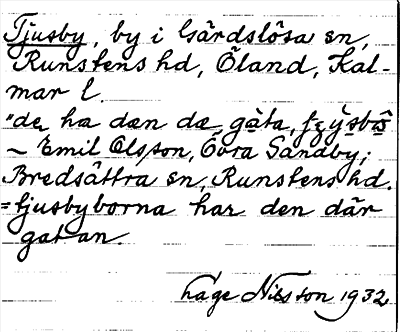 Tjusby, by i Gärdslösa sn,
Runstens hd, Öland, Kal-
mar l.
"de ha dæn dæ gåta,
~ Emil Olsson, Övra Sandby;
Bredsättra sn, Runstens hd.
= tjusbyborna har den där
gatan.
Åge Nilsson 1932